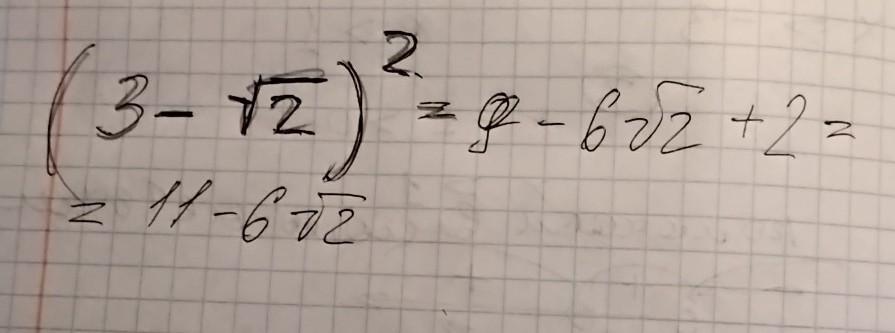 (3 - √2)² = 9 - 6√2 + 2 =
= 11 - 6√2